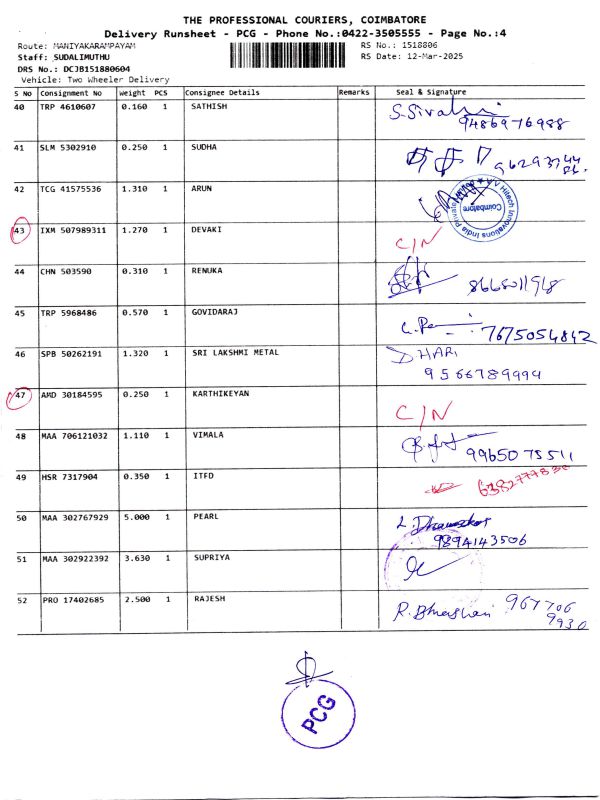 THE PROFESSIONAL COURIERS, COIMBATORE
Delivery Runsheet - PCG - Phone No.:0422-3505555 - Page No.:4
Route: MANIYAKARAMPAYAM RS No.: 1518806
Staff: SUDALIMUTHU RS Date: 12-Mar-2025
DRS No.: DCJB151880604
Vehicle: Two Wheeler Delivery
S No Consignment No Weight PCS Consignee Details Remarks Seal & Signature
40 TRP 4610607 0.160 1 SATHISH
9486976988
41 SLM 5302910 0.250 1 SUDHA
42 TCG 41575536 1.310 1 ARUN
AV Hitech Innovations India Private
Coimbatore
43 IXM 507989311 1.270 1 DEVAKI C/N
44 CHN 503590 0.310 1 RENUKA
45 TRP 5968486 0.570 1 GOVIDARAJ
7675054842
46 SPB 50262191 1.320 1 SRI LAKSHMI METAL DHARI
9566789994
47 AMD 30184595 0.250 1 KARTHIKEYAN C/N
48 MAA 706121032 1.110 1 VIMALA 9965075511
49 HSR 7317904 0.350 1 ITFD 6382777830
50 MAA 302767929 5.000 1 PEARL
9894143506
51 MAA 302922392 3.630 1 SUPRIYA
52 PRO 17402685 2.500 1 RAJESH 967706
9930
PCG